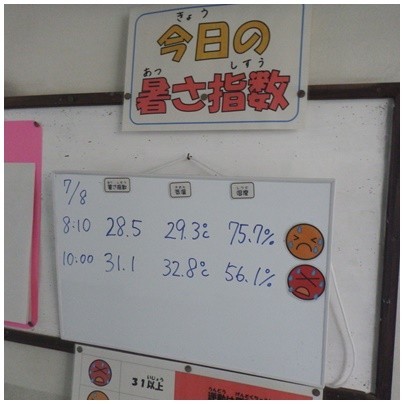 きょう
今日の
あつ しすう
暑さ指数
7/8
暑さ指数 気温 湿度
8:10 28.5 29.3℃ 75.7%
10:00 31.1 32.8℃ 56.1%
いじょう
31以上
うんどう